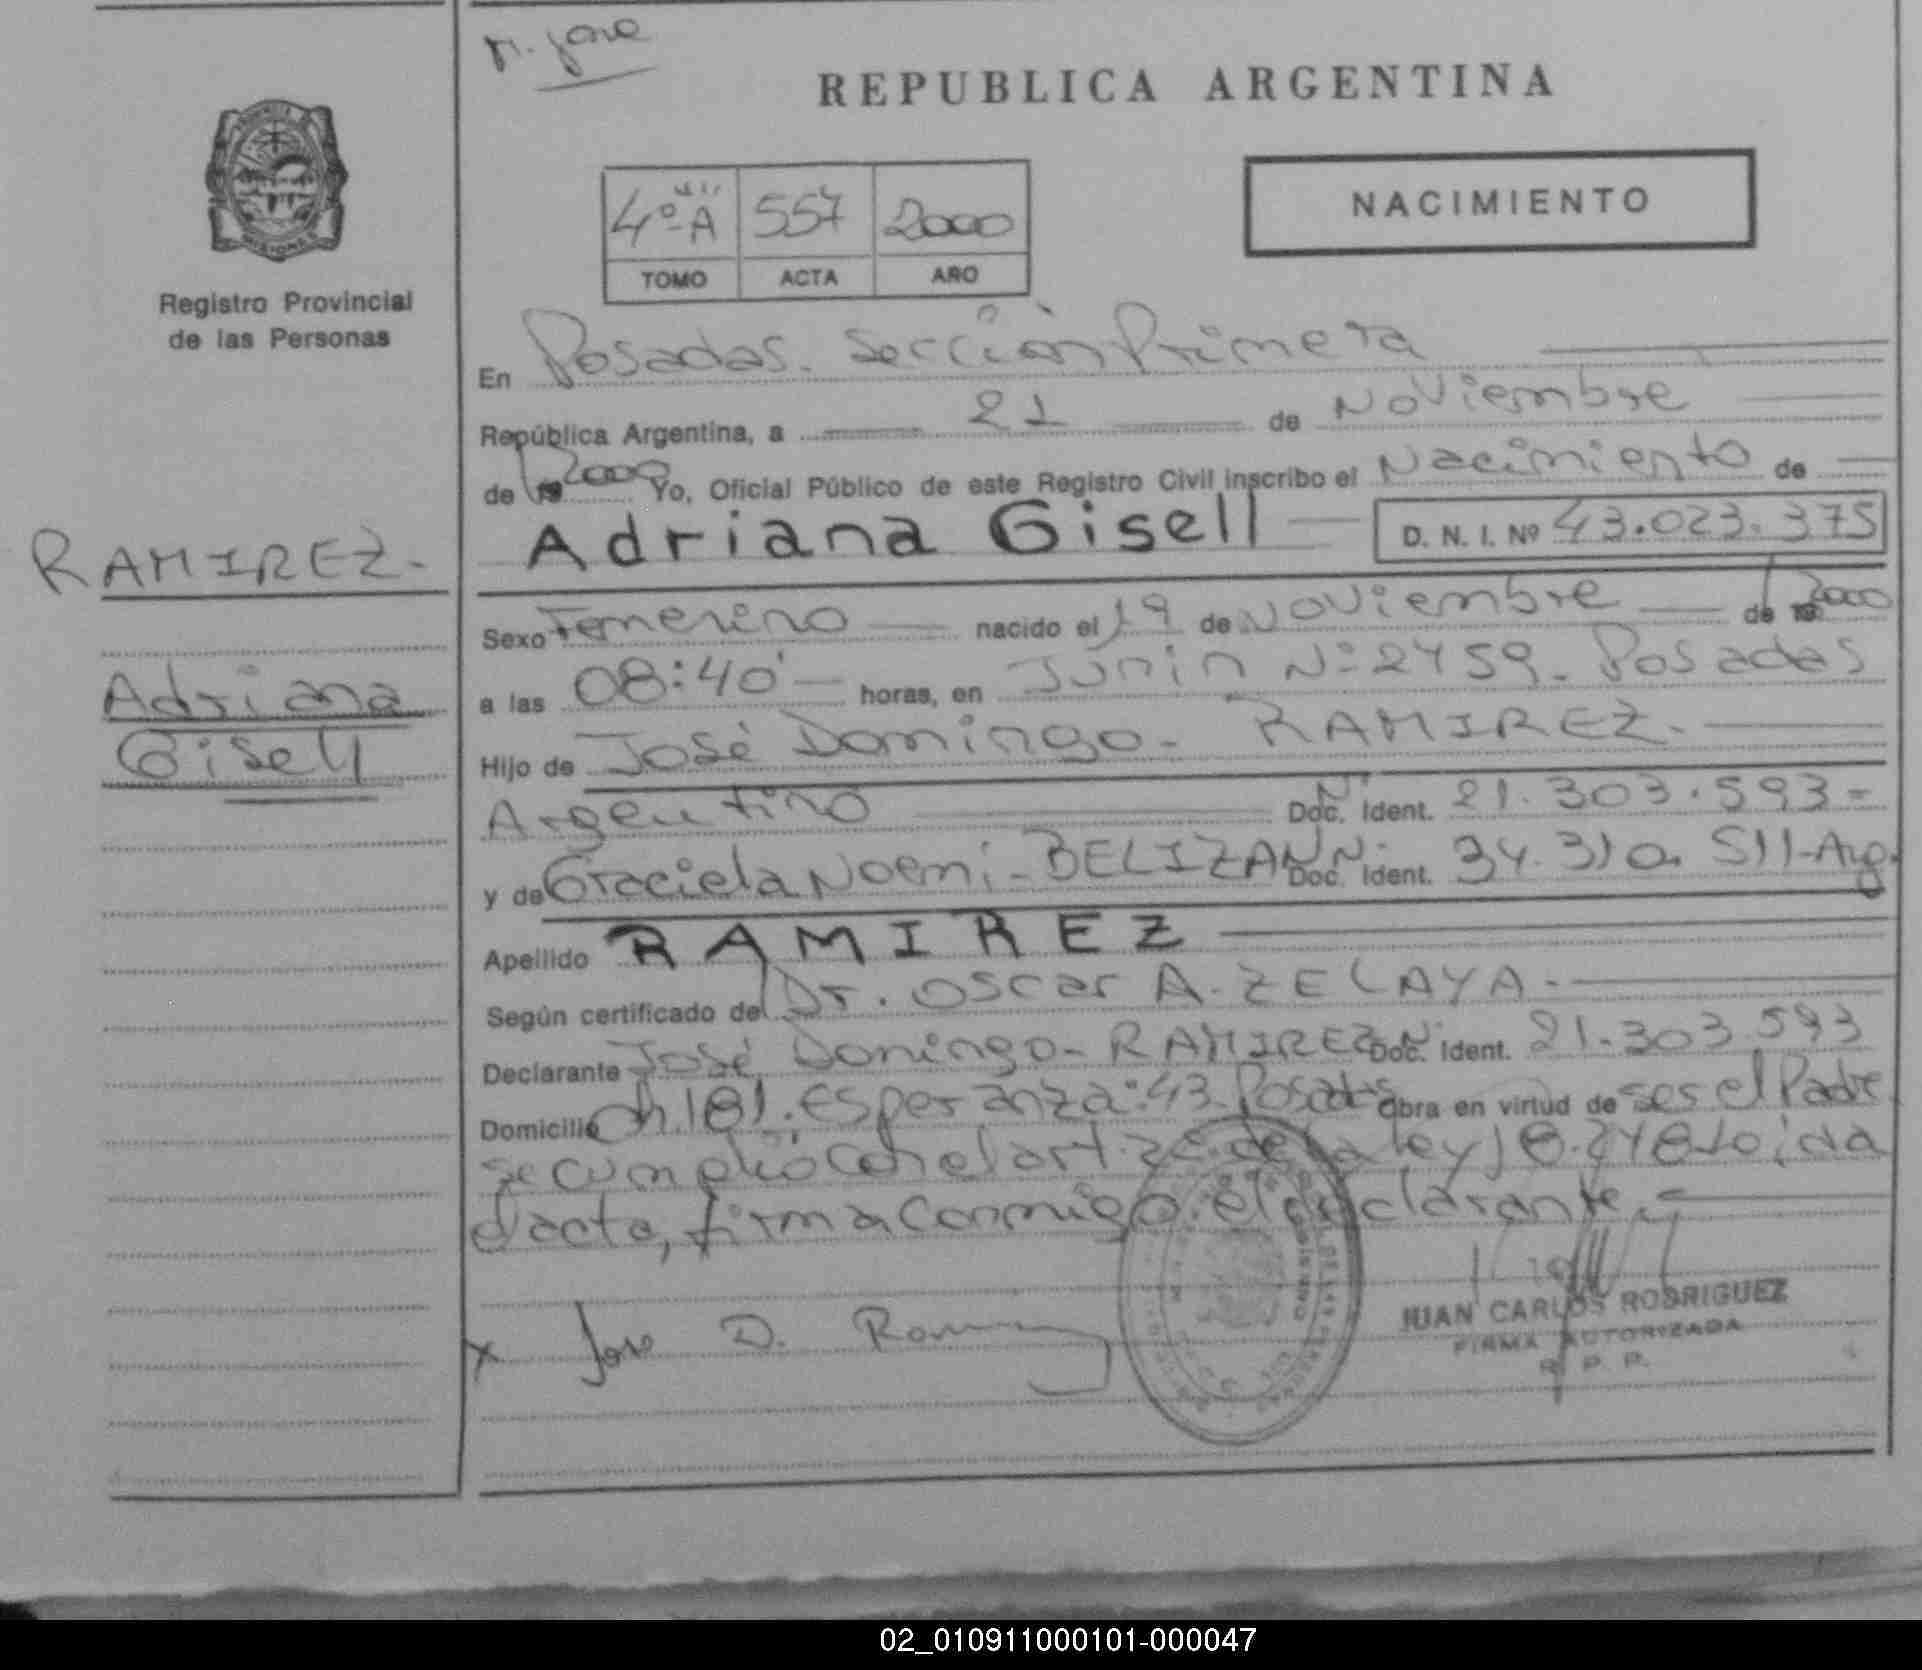 REPUBLICA ARGENTINA
4º A 557 2000
TOMO ACTA AÑO
NACIMIENTO
MISIONES
Registro Provincial
de las Personas
En Posadas. Sección Primera
República Argentina, a 21 de Noviembre
de 2000 Yo, Oficial Público de este Registro Civil inscribo el Nacimiento de
RAMIREZ.
Adriana Gisell D. N. I. Nº 43.023.375
Sexo Femenino nacido el 19 de Noviembre de 2000
Adriana
Gisell
a las 08:40 horas, en Junín Nº 2459. Posadas
Hijo de José Domingo - RAMIREZ.
Argentino Doc. Ident. 21.303.593 -
y de Graciela Noemi - BELIZAN Doc. Ident. 34.310.511 - Arg.
Apellido RAMIREZ
Según certificado del Dr. Oscar A. ZELAYA.-
Declarante José Domingo - RAMIREZ Doc. Ident. 21.303.593
Domicilio Ch. 181. Esperanza: 43. Posadas Obra en virtud de ser el Padre
se cumplió con el art. de la ley 18.248 Leída
el acta, firma conmigo el declarante.-
x Jose D. Ram
JUAN CARLOS RODRIGUEZ
FIRMA AUTORIZADA
R. P. P.
02_010911000101-000047